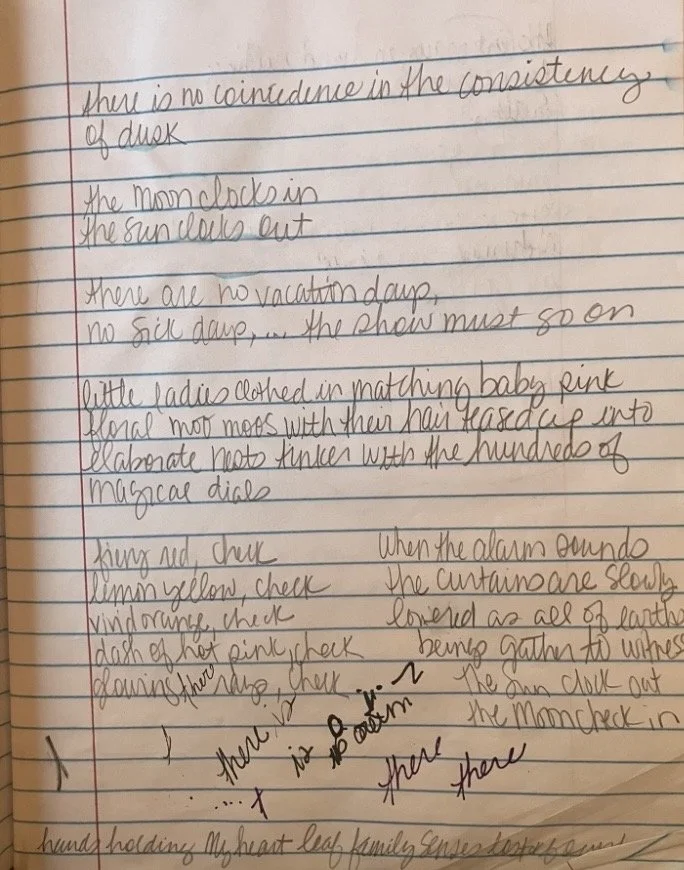 there is no coincedence in the consistency
of dusk
the moon clocks in
the sun clocks out
there are no vacation days,
no sick days, ... the show must go on
little ladies clothed in matching baby pink
floral moo moos with their hair teased up into
elaborate nests tinker with the hundreds of
magical dials
fiery red, check
limon yellow, check
vivid orange, check
dash of hot pink, check
glowing rays, check
when the alarm sounds
the curtains are slowly
lowered as all of earths
beings gather to witness
the sun clock out
the moon check in
there is
is alarm
there there
hands holding My heart leaf family senses